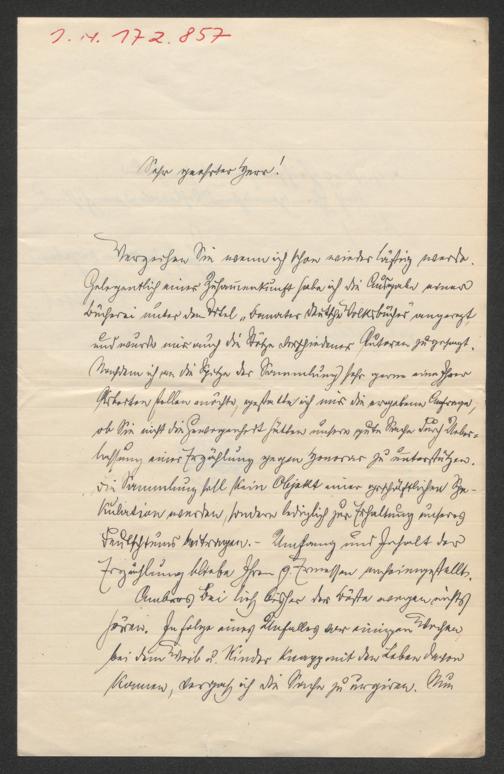 J. N. 172.857
Sehr geehrter Herr!
Verzeihen Sie wenn ich schon wieder lästig werde.
Gelegentlich einer Zusammenkunft habe ich die Ausgabe einer
Bücherei unter dem Titel „Banater deutsche Volksbücher" angeregt
und wurde mir auch die Stütze verschiedener Autoren zugesagt.
Nachdem ich an die Spitze der Sammlung sehr gerne eine Ihrer
Arbeiten stellen möchte, gestatte ich mir die ergebene Anfrage,
ob Sie nicht die Gewogenheit hätten unsere gute Sache durch Ueber-
lassung einer Erzählung gegen Honorar zu unterstützen.
Die Sammlung soll kein Objekt einer geschäftlichen Spe-
kulation werden, sondern lediglich zur Erhaltung unseres
Deutschtums beitragen. – Umfang und Inhalt der
Erzählung bliebe Ihrem g. Ermessen anheimgestellt.
Ambros Bei ließ bisher der Büste wegen nichts
hören. Infolge eines Unfalles vor einigen Wochen
bei dem Weib u. Kinder knapp mit dem Leben davon
kamen, vergaß ich die Sache zu urgiren. Nun